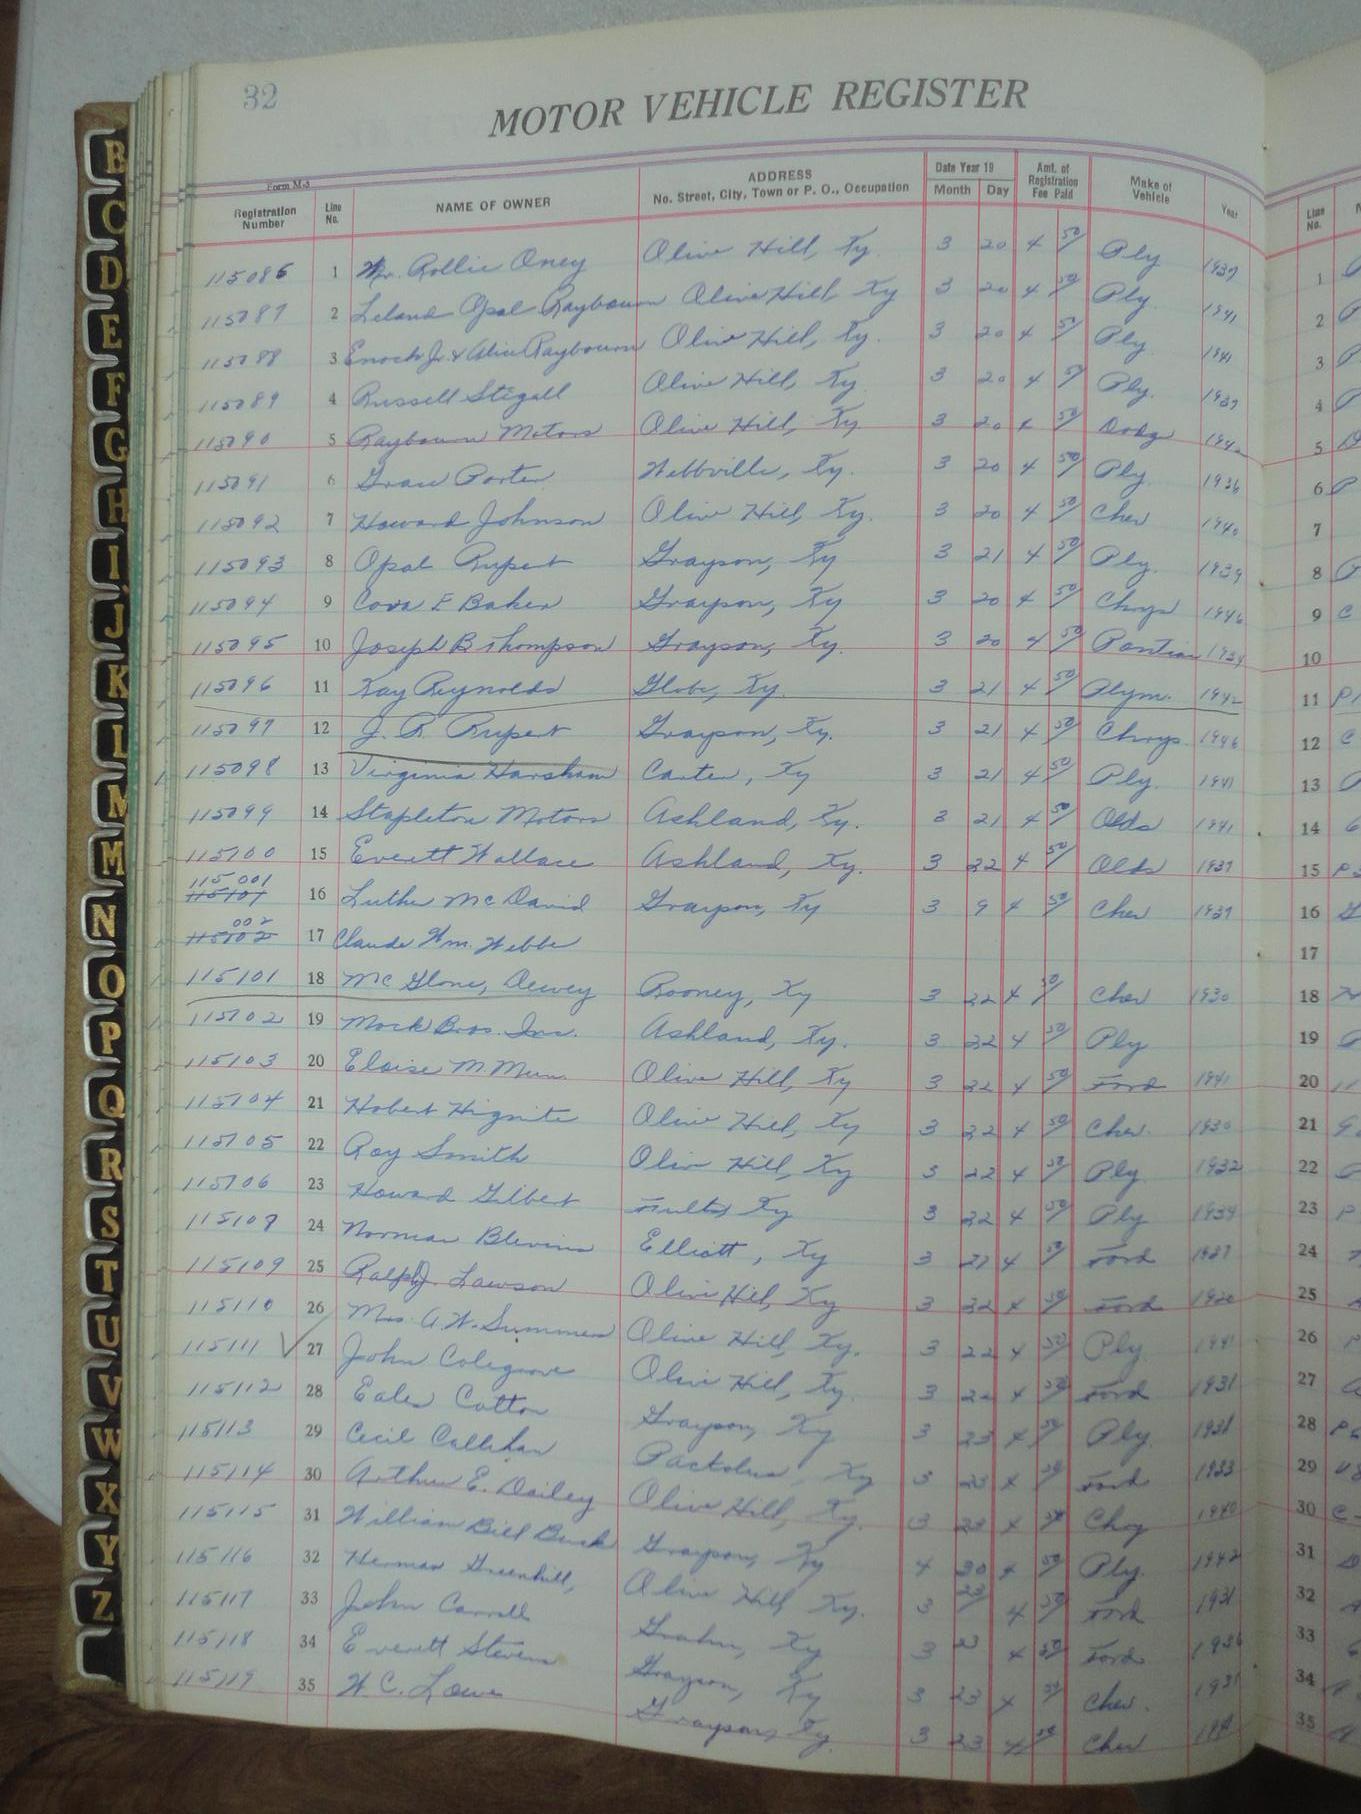 32
MOTOR VEHICLE REGISTER
Form M-3
Registration Number Line No. NAME OF OWNER ADDRESS No. Street, City, Town or P. O., Occupation Date Year 19 Month Day Amt. of Registration Fee Paid Make of Vehicle Year
115086 1 Mr. Rollie Oney Olive Hill, Ky. 3 20 4 50 Ply 1937
115087 2 Leland Opal Raybourn Olive Hill, Ky 3 20 4 50 Ply. 1941
115088 3 Enoch Jr. & Alice Raybourn Olive Hill, Ky. 3 20 4 50 Ply. 1941
115089 4 Russell Stegall Olive Hill, Ky. 3 20 4 50 Ply. 1937
115090 5 Raybourn Motors Olive Hill, Ky 3 20 4 50 Dodg 1942
115091 6 Porter Webbville, Ky. 3 20 4 50 Ply. 1936
115092 7 Howard Johnson Olive Hill, Ky. 3 20 4 50 Chev 1940
115093 8 Opal Rupert Grayson, Ky 3 21 4 50 Ply. 1939
115094 9 Cova E Baker Grayson, Ky 3 20 4 50 Chrys 1946
115095 10 Joseph B Thompson Grayson, Ky. 3 20 4 50 Pontiac
115096 11 Kay Reynolds Globe, Ky. 3 21 4 50 Plym. 1942
115097 12 J. R. Rupert Grayson, Ky. 3 21 4 50 Chrys 1946
115098 13 Virginia Harsham Carter, Ky 3 21 4 50 Ply. 1941
115099 14 Stapleton Motors Ashland, Ky. 3 21 4 50 Olds 1941
115100 15 Everett Wallace Ashland, Ky. 3 22 4 50 Olds 1937
115 001
115101 16 Luther McDavid Grayson, Ky 3 9 4 50 Chev 1937
002
115102 17 Claude Wm. Webb
115101 18 McGlone, Dewey Rooney, Ky 3 22 4 50 Chev 1930
115102 19 Mock Bros. Inc. Ashland, Ky. 3 22 4 50 Ply
115103 20 Eloise M Olive Hill, Ky 3 22 4 50 Ford 1941
115104 21 Hobert Hignite Olive Hill, Ky 3 22 4 50 Chev. 1930
115105 22 Roy Smith Oliv Hill, Ky 3 22 4 50 Ply. 1932
115106 23 Howard Gilbert Fultz, Ky 3 22 4 50 Ply 1939
24 Norman Blevins Elliott, Ky 3 4 50 Ford 1937
115109 25 Ralph J. Lawson Olive Hill, Ky 3 22 4 50 Ford
115110 26 Mrs. A. W. Summers Olive Hill, Ky. 3 22 4 50 Ply 1941
115111 27 John Colegrove Olive Hill, Ky. 3 22 4 50 Ford 1931
115112 28 Cotton Grayson, Ky 3 23 4 50 Ply.
115113 29 Cecil Callihan Pactolus, Ky 3 23 4 50 Ford 1933
115114 30 Arthur E. Dailey Olive Hill, Ky. 3 23 4 50 1940
115115 31 William Bill Buck Grayson, Ky 4 30 4 50 Ply. 1942
115116 32 Herman Greenhill, Olive Hill, Ky. 3 23 4 50 Ford 1931
115117 33 John Carroll Grahn, Ky 3 23 4 50 Ford 1936
115118 34 Everett Stevens Grayson, Ky 3 23 4 50 Chev. 1931
115119 35 W. C. Lowe Grayson, Ky. 3 23 4 50 Chev
B
C
D
E
F
G
H
I
J
K
L
M
M
N
O
P
Q
R
S
T
U
V
W
X
Y
Z
Line No.
1
2
3
4
5
6
7
8
9
10
11
12
13
14
15
16
17
18
19
20
21
22
23
24
25
26
27
28
29
30
31
32
33
34
35